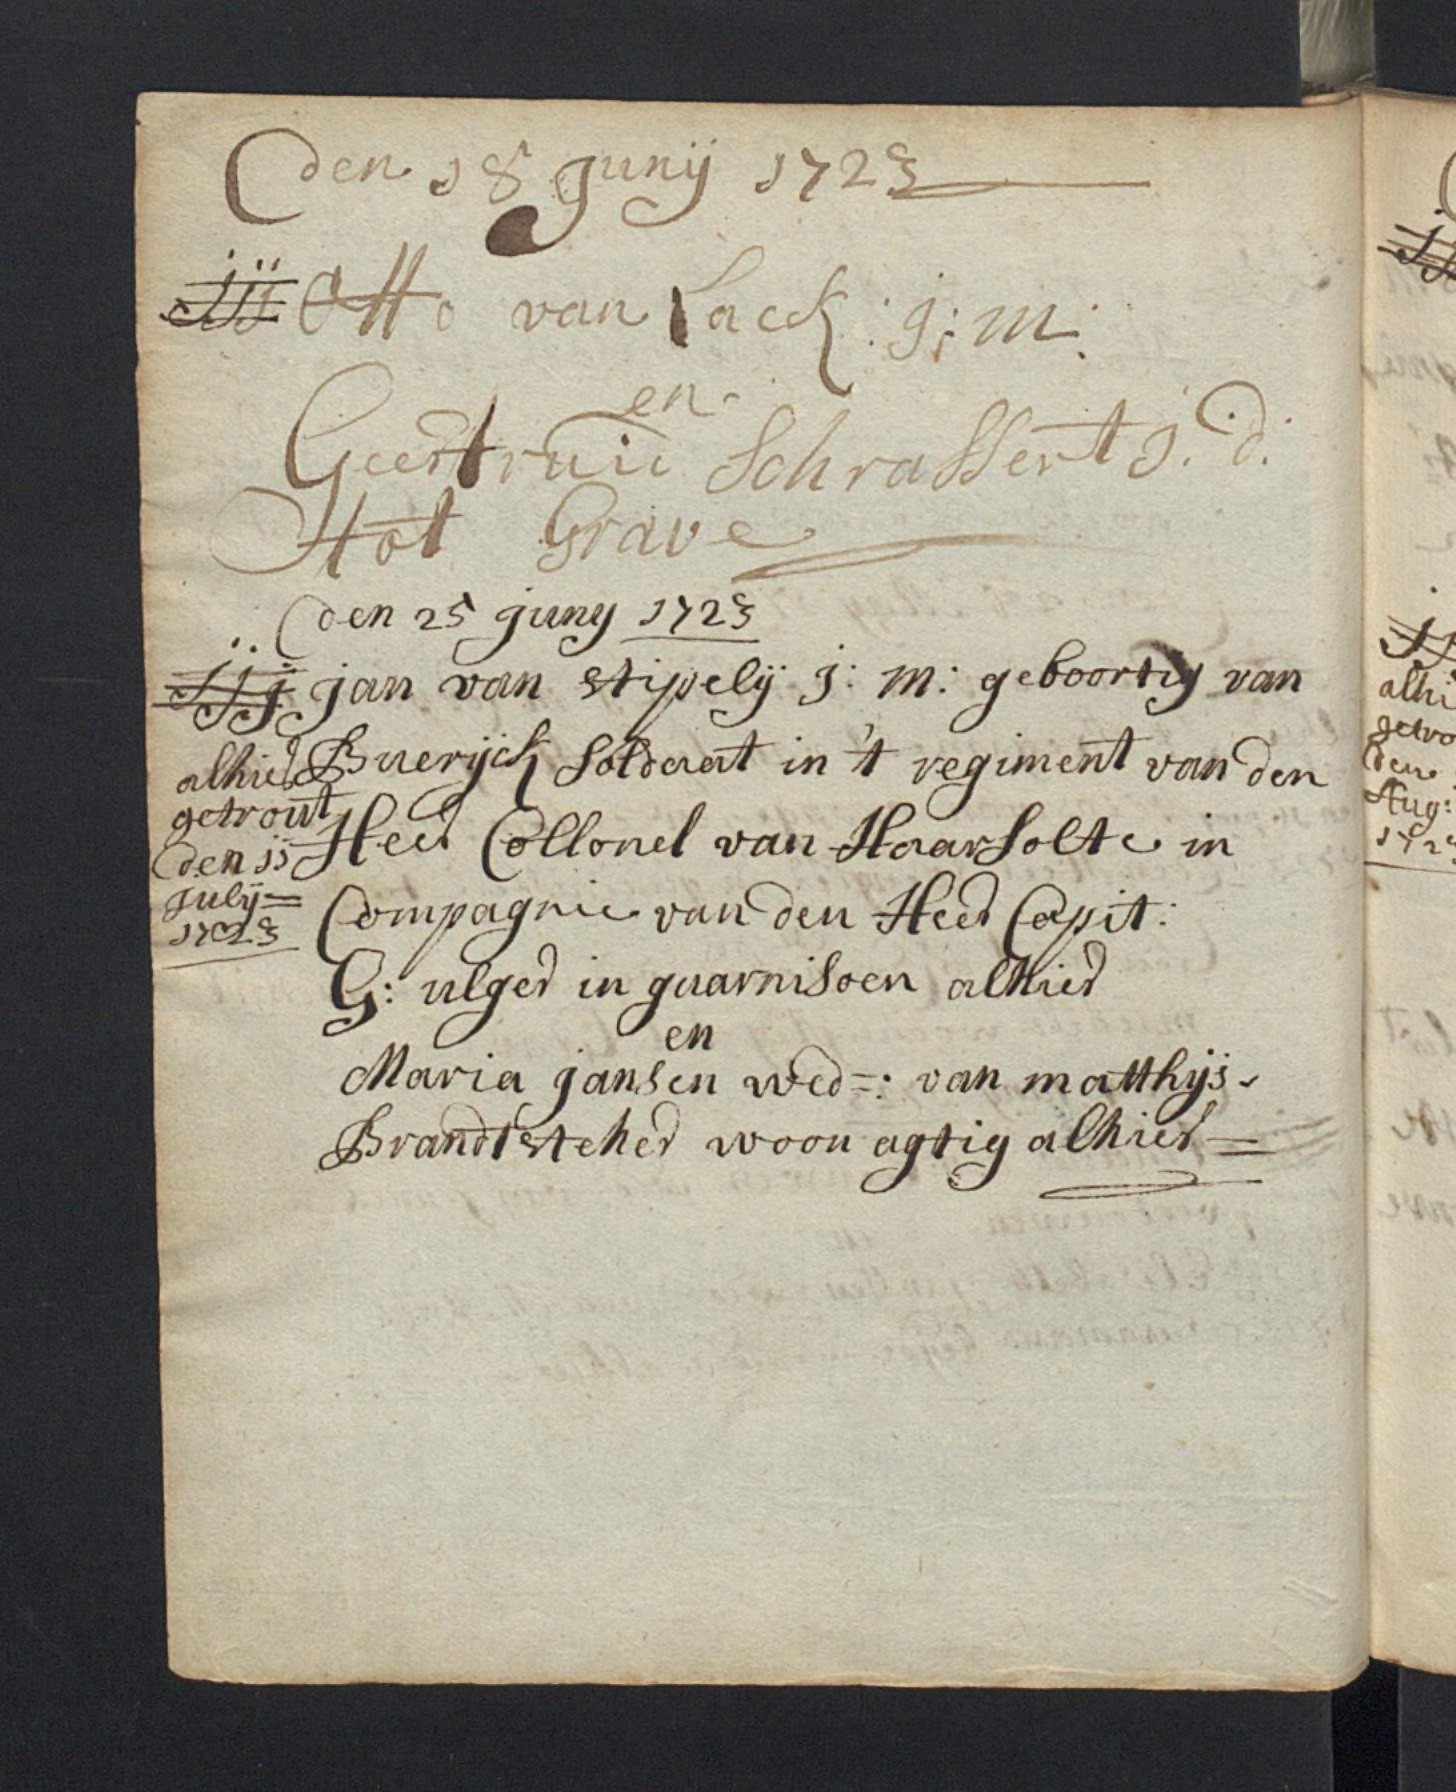 den 18 Junij 1723
jjj Otto van Lack: J: m:
en
Geertruii Schrassert J. d.
tot Grave
den 25 juny 1723
jjj jan van stipelij j: m: geboortig van
Buerijck Soldaat in 't regiment van den
Heer Collonel van Haarsolte in
Compagnie van den Heer Capit:
G: ulger in guarnisoen alhier
en
Maria jansen wed=: van matthijs
Brandtsteher woon agtig alhier=
alhier
getrout
den 11
July=
1723
alhi
getro
den
Aug:
172